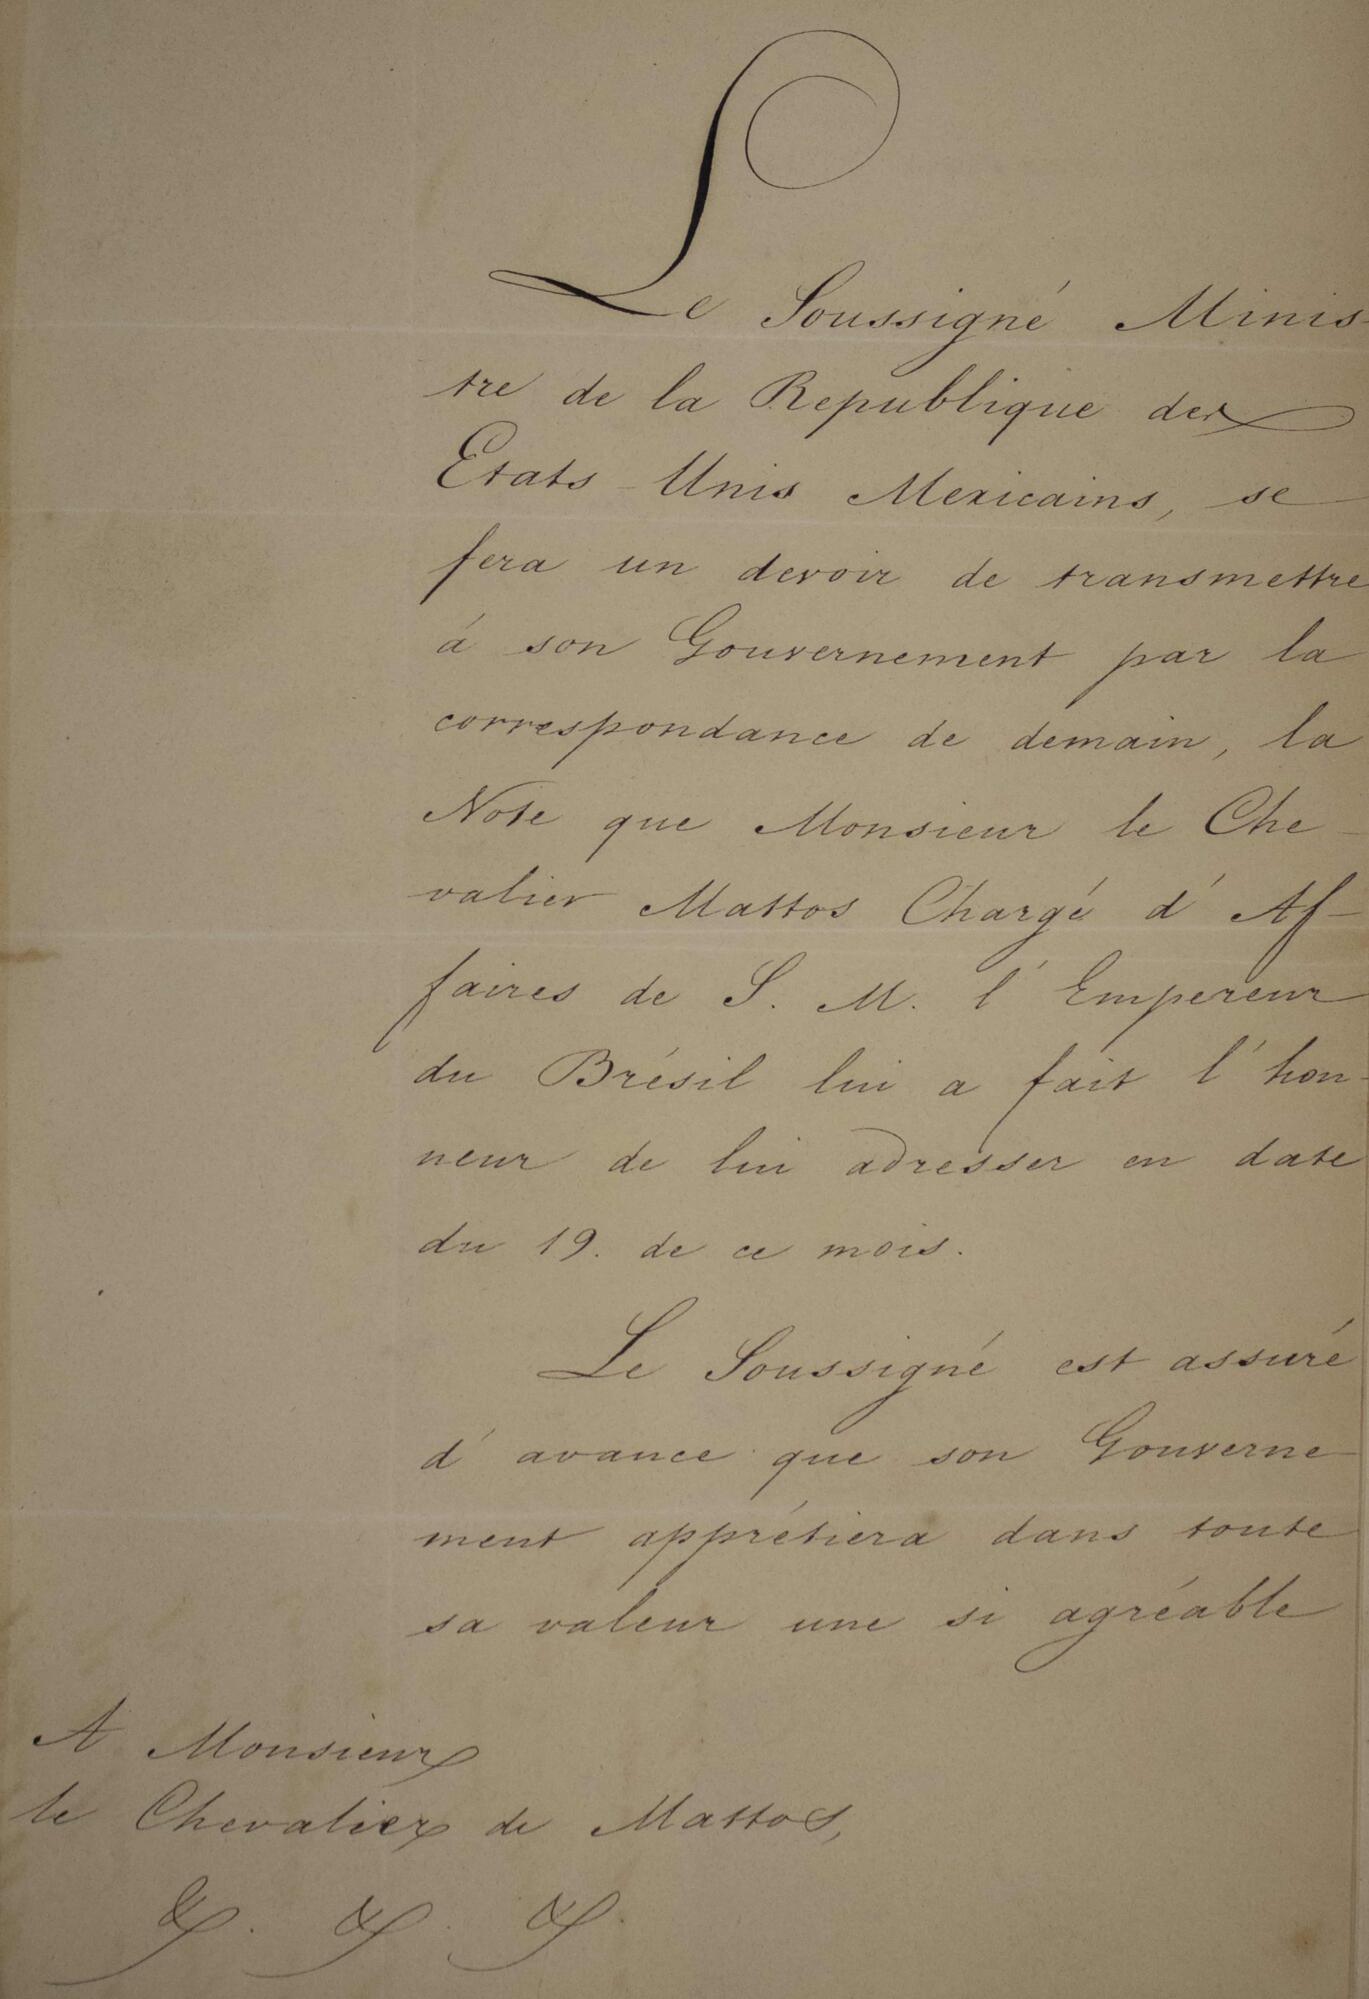 Le Soussigné Minis-
tre de la Republique des
Etats-Unis Mexicains, se
fera un devoir de transmettre
á son Gouvernement par la
correspondance de demain, la
Note que Monsieur le Che-
valier Mattos Chargé d'Af-
faires de S. M. l'Empereur
du Brésil lui a fait l'hon-
neur de lui adresser en date
du 19. de ce mois.
Le Soussigné est assuré
d'avance que son Gouverne-
ment apprétiera dans toute
sa valeur une si agréable
A Monsieur
le Chevalier de Mattos,
&. &. &.